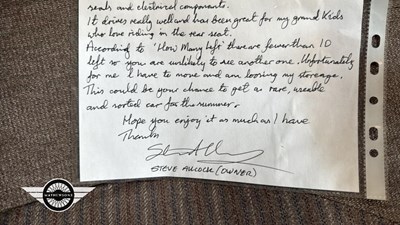 seals and electrical components.
It drives really well and has been great for my grand Kids
who love riding in the rear seat.
According to 'How Many Left' there are fewer than 10
left so you are unlikely to see another one. Unfortunately
for me I have to move and am loosing my storage.
This could be your chance to get a rare, useable
and sorted car for the summer.
Hope you enjoy it as much as I have
Thanks
STEVE (OWNER)
MATHEWSONS